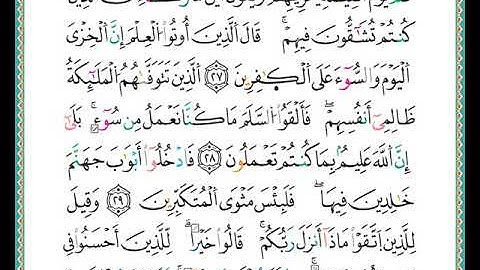 كُنتُمْ تُشَٰٓقُّونَ فِيهِمْ ۚ قَالَ ٱلَّذِينَ أُوتُوا۟ ٱلْعِلْمَ إِنَّ ٱلْخِزْىَ
ٱلْيَوْمَ وَٱلسُّوٓءَ عَلَى ٱلْكَٰفِرِينَ ٢٧ ٱلَّذِينَ تَتَوَفَّىٰهُمُ ٱلْمَلَٰٓئِكَةُ
ظَالِمِىٓ أَنفُسِهِمْ ۖ فَأَلْقَوُا۟ ٱلسَّلَمَ مَا كُنَّا نَعْمَلُ مِن سُوٓءٍۭ ۚ بَلَىٰٓ
إِنَّ ٱللَّهَ عَلِيمٌۢ بِمَا كُنتُمْ تَعْمَلُونَ ٢٨ فَٱدْخُلُوٓا۟ أَبْوَٰبَ جَهَنَّمَ
خَٰلِدِينَ فِيهَا ۖ فَلَبِئْسَ مَثْوَى ٱلْمُتَكَبِّرِينَ ٢٩ وَقِيلَ
لِلَّذِينَ ٱتَّقَوْا۟ مَاذَآ أَنزَلَ رَبُّكُمْ ۚ قَالُوا۟ خَيْرًا ۗ لِّلَّذِينَ أَحْسَنُوا۟ فِى